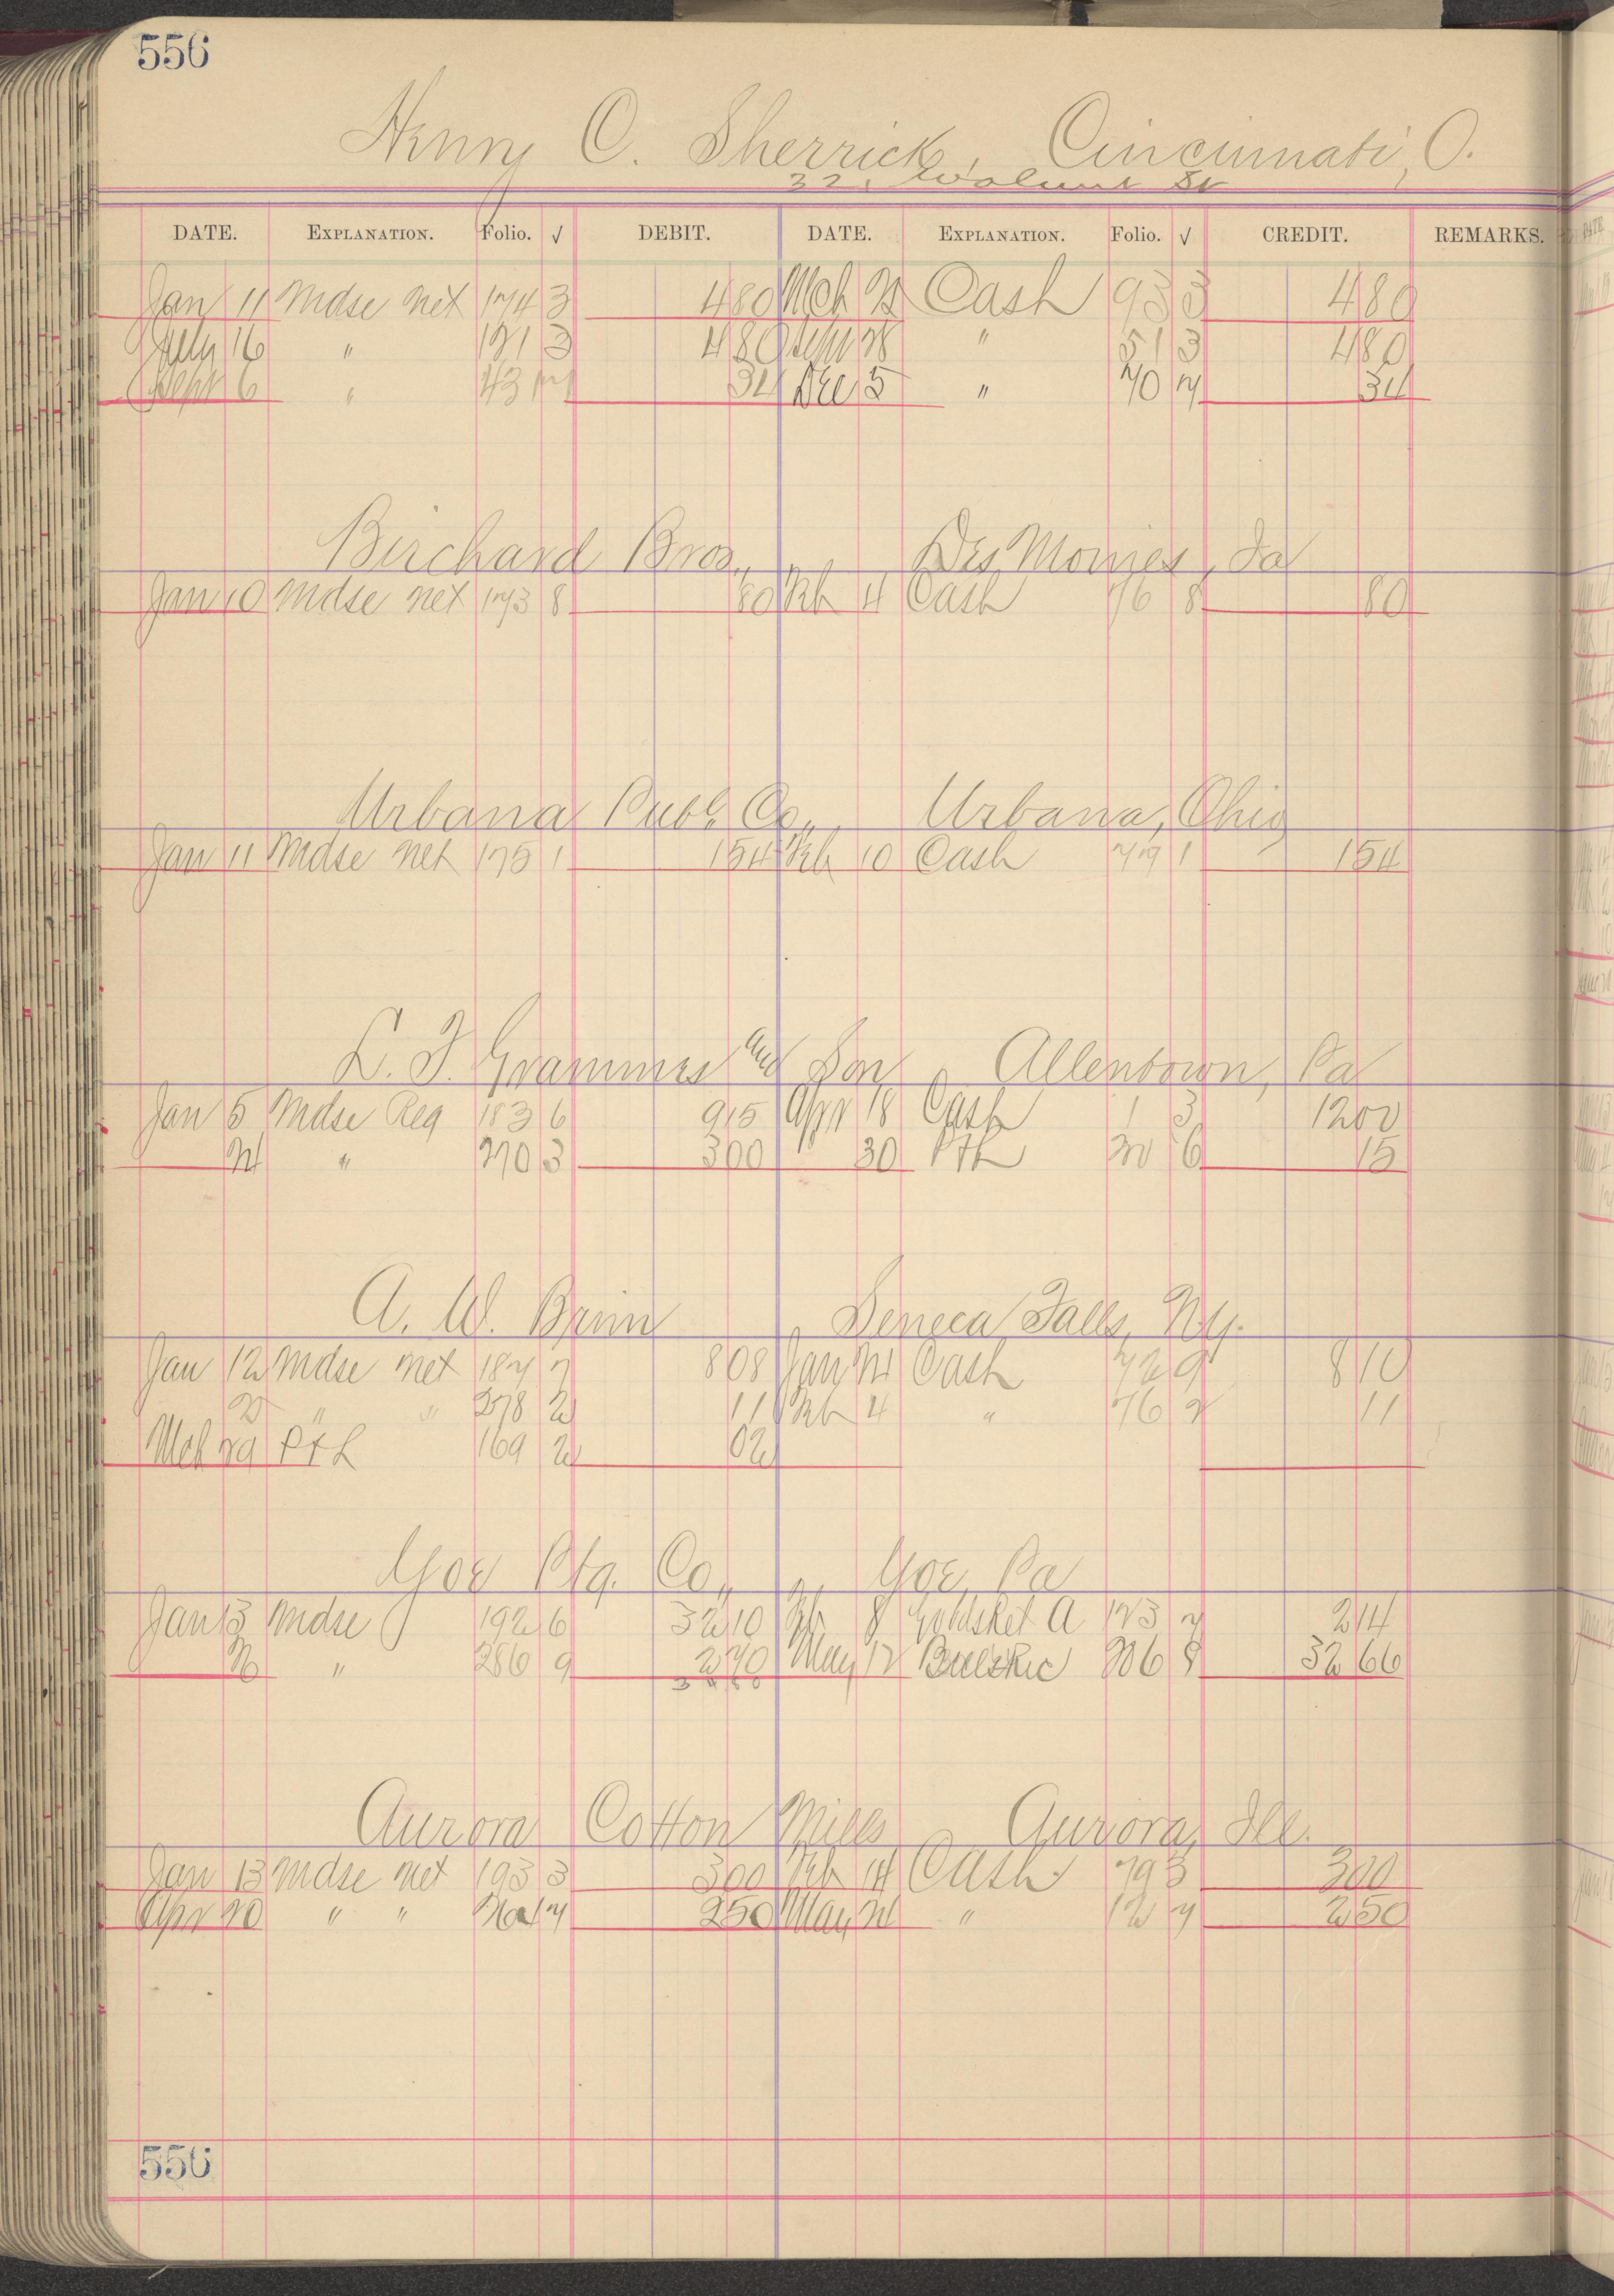 556
Henry C. Sherrick, Cincinnati, O.
Walnut St
DATE. EXPLANATION. Folio. √ DEBIT. DATE. EXPLANATION. Folio. √ CREDIT. REMARKS.
Jan 11 Mdse net 174 3 4 80 Mch Cash 93 3 4 80
July 16 " 121 3 4 80 Sept 28 " 51 3 4 80
Sept 6 " 43 34 Dec 5 " 70 7 34
Birchard Bros., Des Moines, Ia
Jan 10 Mdse net 173 8 80 Feb 4 Cash 76 8 80
Urbana Publ. Co., Urbana, Ohio
Jan 11 Mdse net 175 1 1 54 Feb 10 Cash 77 1 1 54
L. F. Grammes and Son Allentown, Pa
Jan 5 Mdse Reg 183 6 9 15 Apr 18 Cash 1 3 12 00
" 270 3 3 00 30 P+L 20 6 15
A. W. Brim Seneca Falls, N.Y.
Jan 12 Mdse net 187 7 8 08 Jan Cash 72 9 8 10
" " 278 2 11 Feb 4 " 76 2 11
Mch 29 P+L 169 2 02
Yoe Ptg. Co., Yoe, Pa
Jan 13 Mdse 192 6 32 10 Feb 8 A 123 7 2 14
" 286 9 2 70 May 12 206 8 32 66
34 80
Aurora Cotton Mills Aurora, Ill.
Jan 13 Mdse net 193 3 3 00 Feb 14 Cash 79 3 3 00
Apr 20 " " 7 2 50 May " 12 7 2 50
556